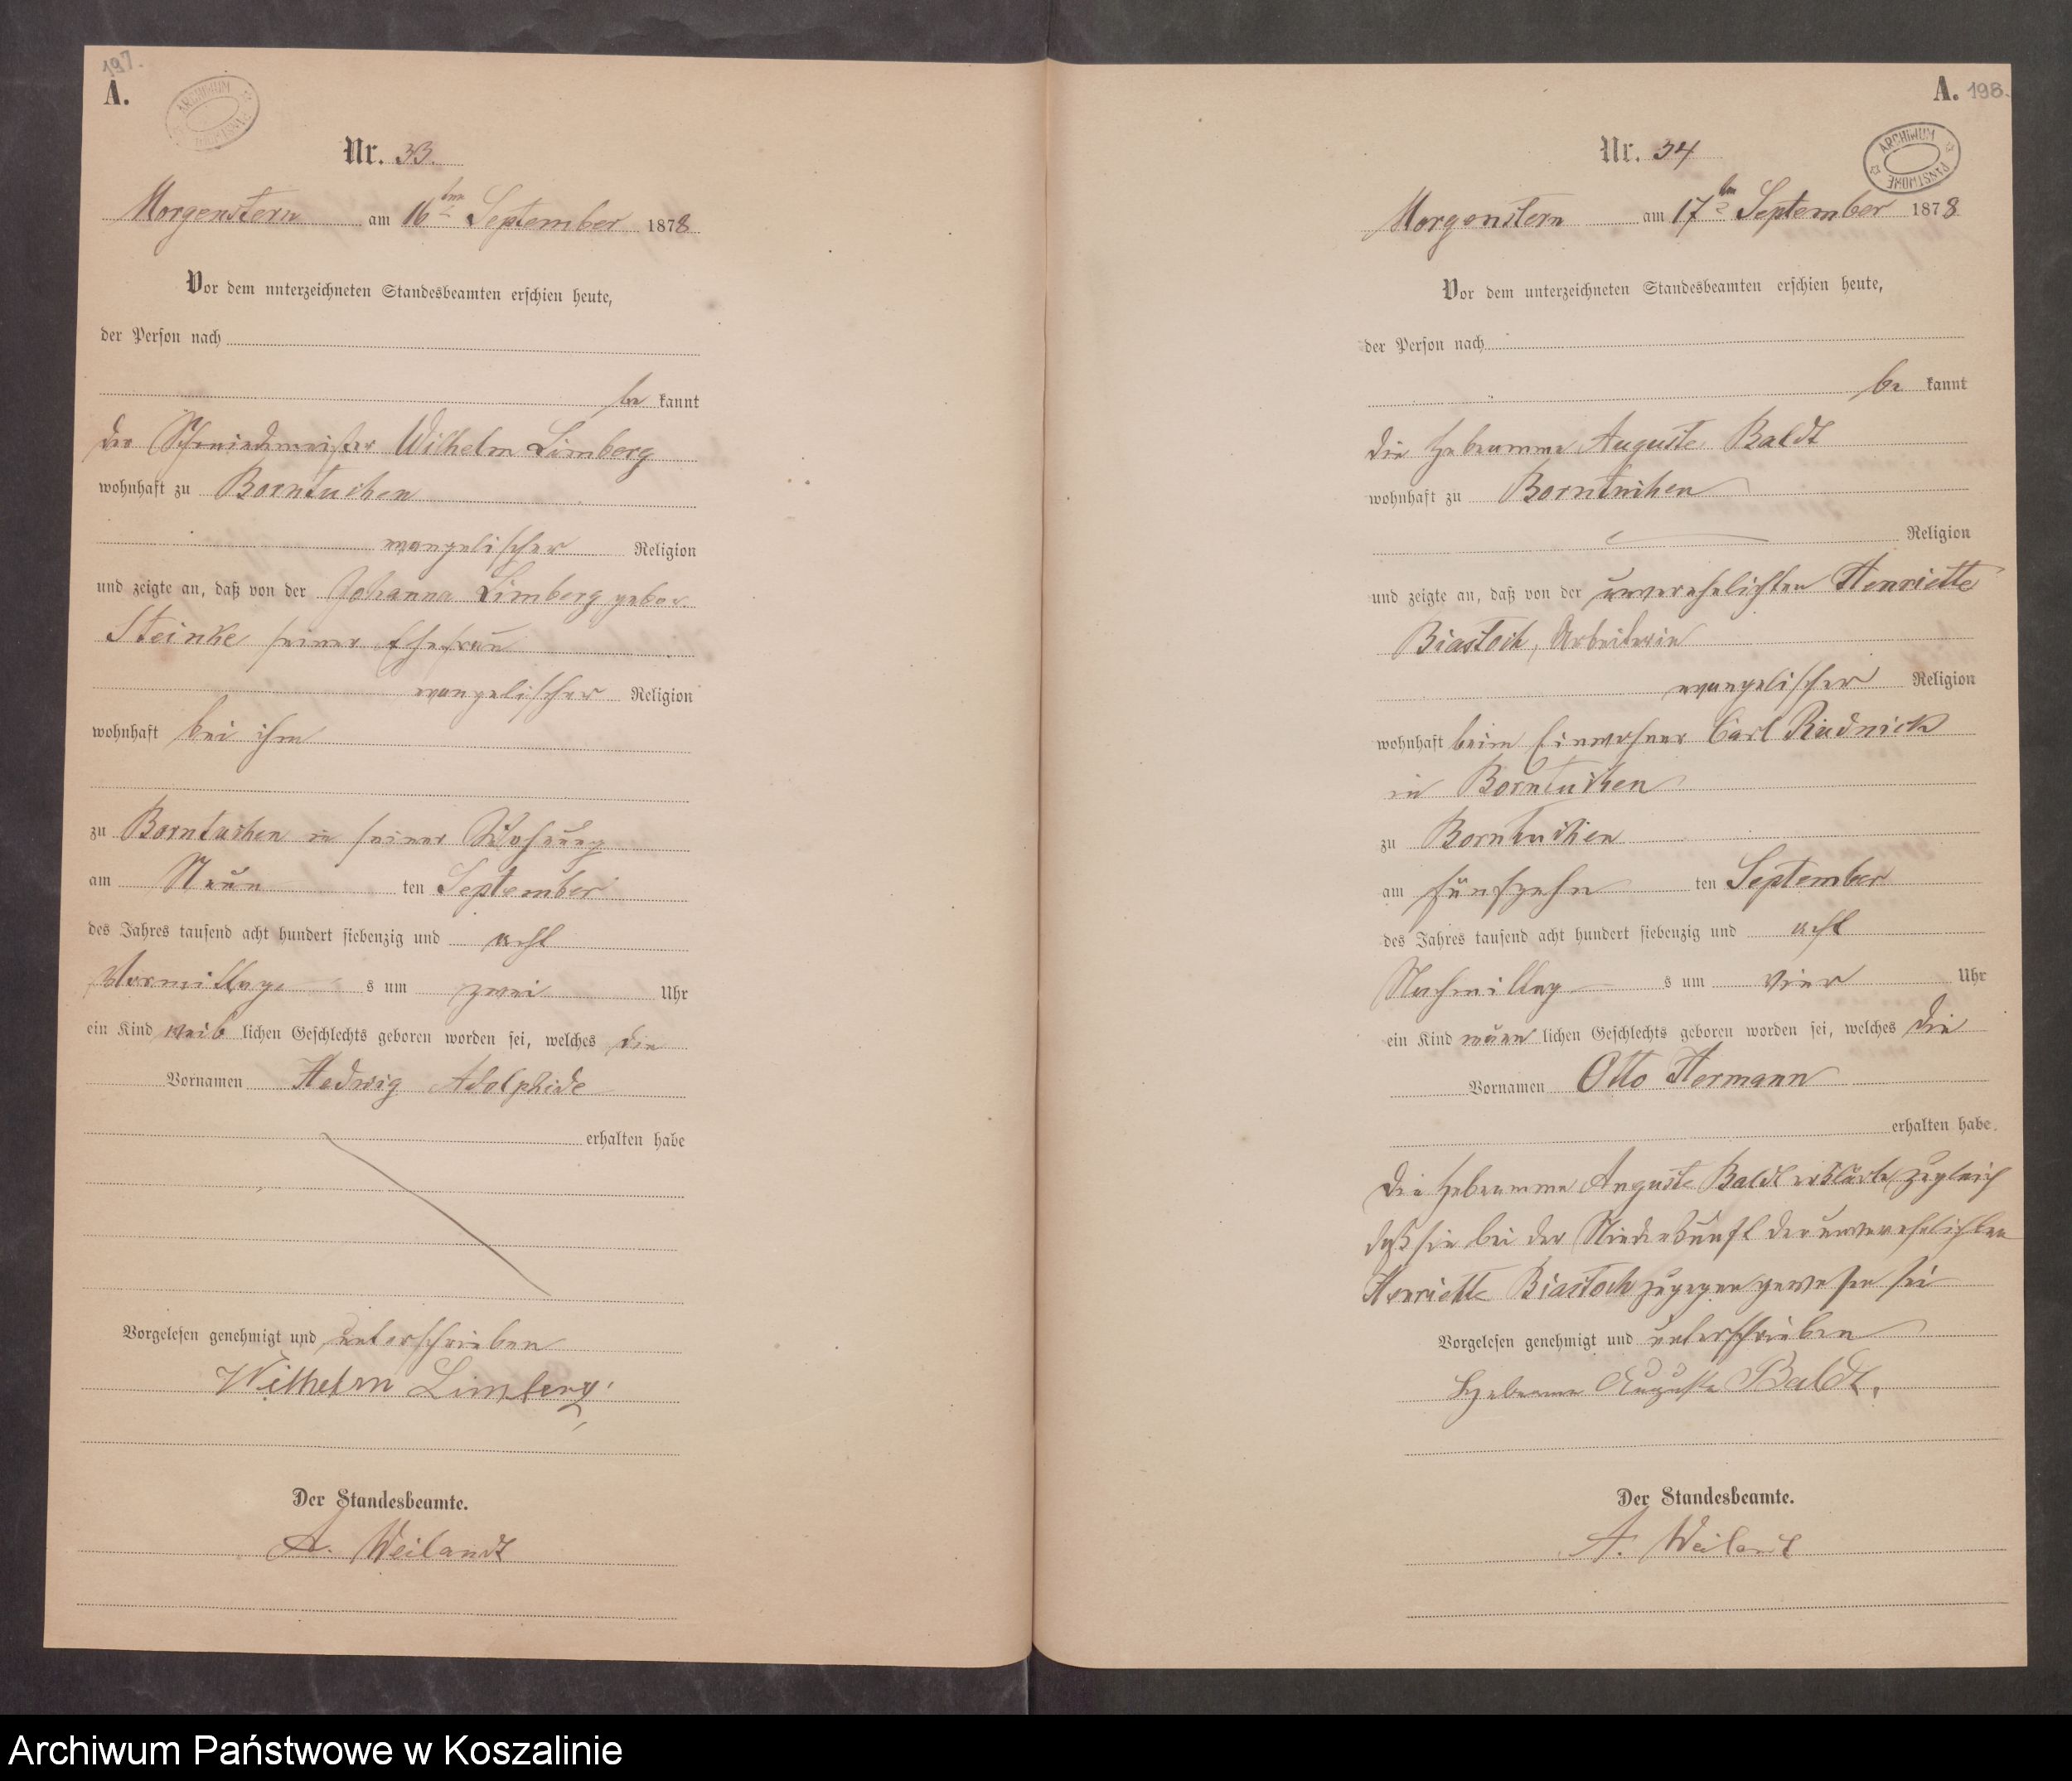 197.
A.
ARCHIWUM PAŃSTWOWE
Nr. 33.
Morgenstern am 16ten September 1878
Vor dem unterzeichneten Standesbeamten erschien heute,
der Person nach
be kannt
der Schmiedemeister Wilhelm Limberg
wohnhaft zu Borntuchen
evangelischer Religion
und zeigte an, daß von der Johanna Limberg gebor.
Steinke seiner Ehefrau
evangelischer Religion
wohnhaft bei ihm
zu Borntuchen in seiner Wohnung
am Neun ten September
des Jahres tausend acht hundert siebenzig und acht
Vormittags s um zwei Uhr
ein Kind weib lichen Geschlechts geboren worden sei, welches die
Vornamen Hedwig Adolphide
erhalten habe
Vorgelesen genehmigt und unterschrieben
Wilhelm Limberg
Der Standesbeamte.
A. Weilandt
A. 198.
ARCHIWUM PAŃSTWOWE
Nr. 34
Morgenstern am 17ten September 1878
Vor dem unterzeichneten Standesbeamten erschien heute,
der Person nach
be kannt
die Hebeamme Auguste Baldt
wohnhaft zu Borntuchen
Religion
und zeigte an, daß von der unverehelichten Henriette
Biastoch, Arbeiterin
evangelischer Religion
wohnhaft beim Einwohner Carl Rudnick
in Borntuchen
zu Borntuchen
am fünfzehn ten September
des Jahres tausend acht hundert siebenzig und acht
Nachmittag s um vier Uhr
ein Kind männ lichen Geschlechts geboren worden sei, welches die
Vornamen Otto Hermann
erhalten habe.
Die Hebeamme Auguste Baldt erklärte zugleich
daß sie bei der Niederkunft der unverehelichten
Henriette Biastoch zugegen gewesen sei
Vorgelesen genehmigt und unterschrieben
Hebeame Auguste Baldt.
Der Standesbeamte.
A. Weilandt
Archiwum Państwowe w Koszalinie